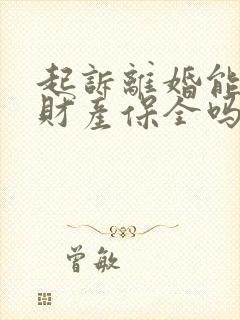 起訴離婚能
財產保全嗎
曾敏